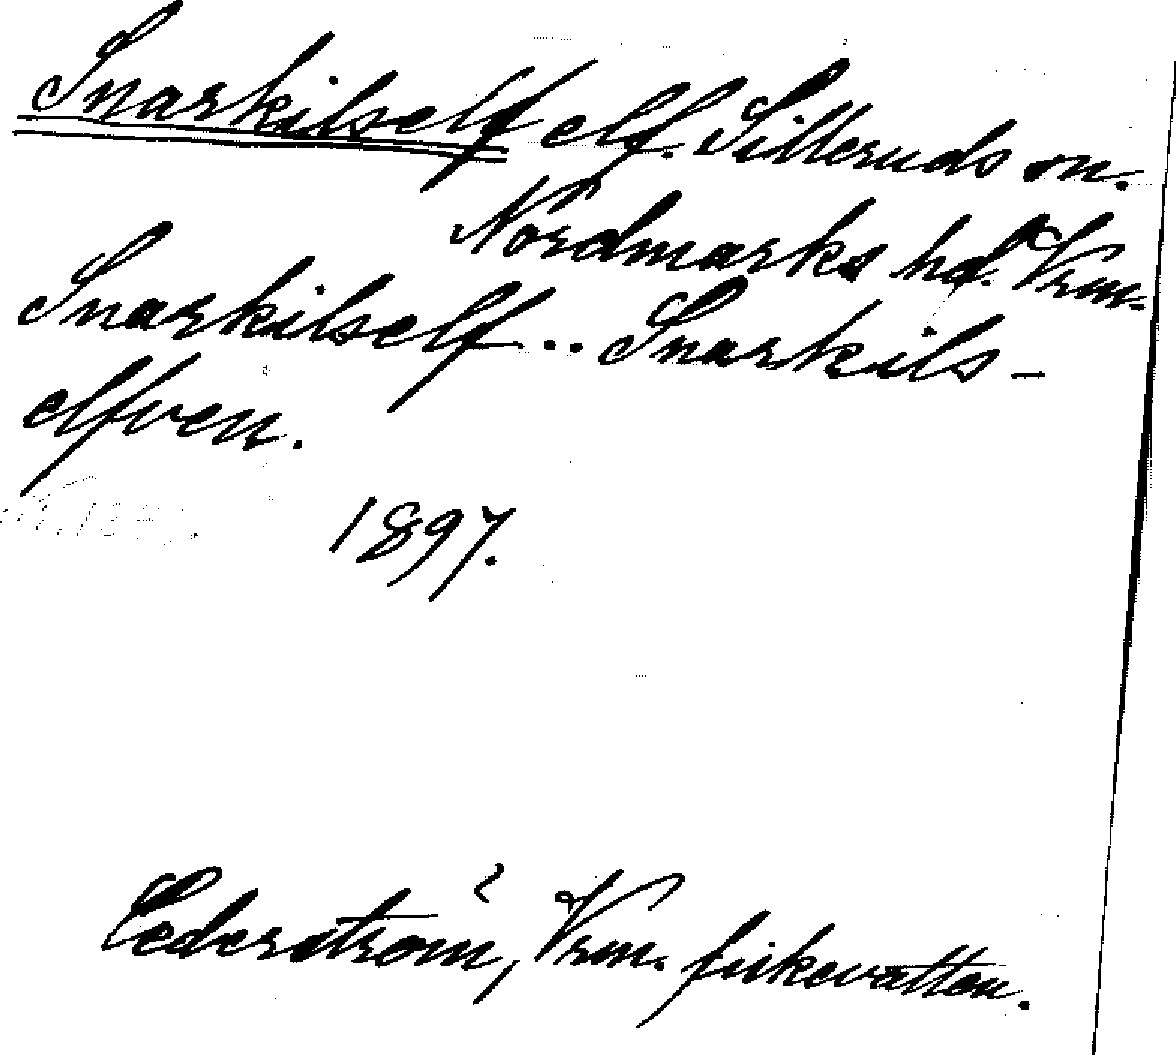 Snarkilself elf. Silleruds sn.
Nordmarks hd. Vrm.
Snarkilself .. Snarkils-
elfven.
1897.
Cederström, Vrm. fiskevatten.